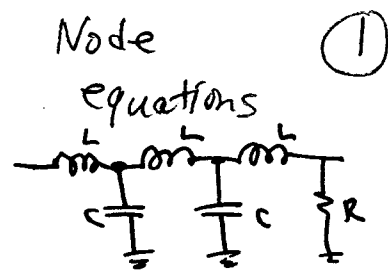 Node
1
equations
L L L
C C R